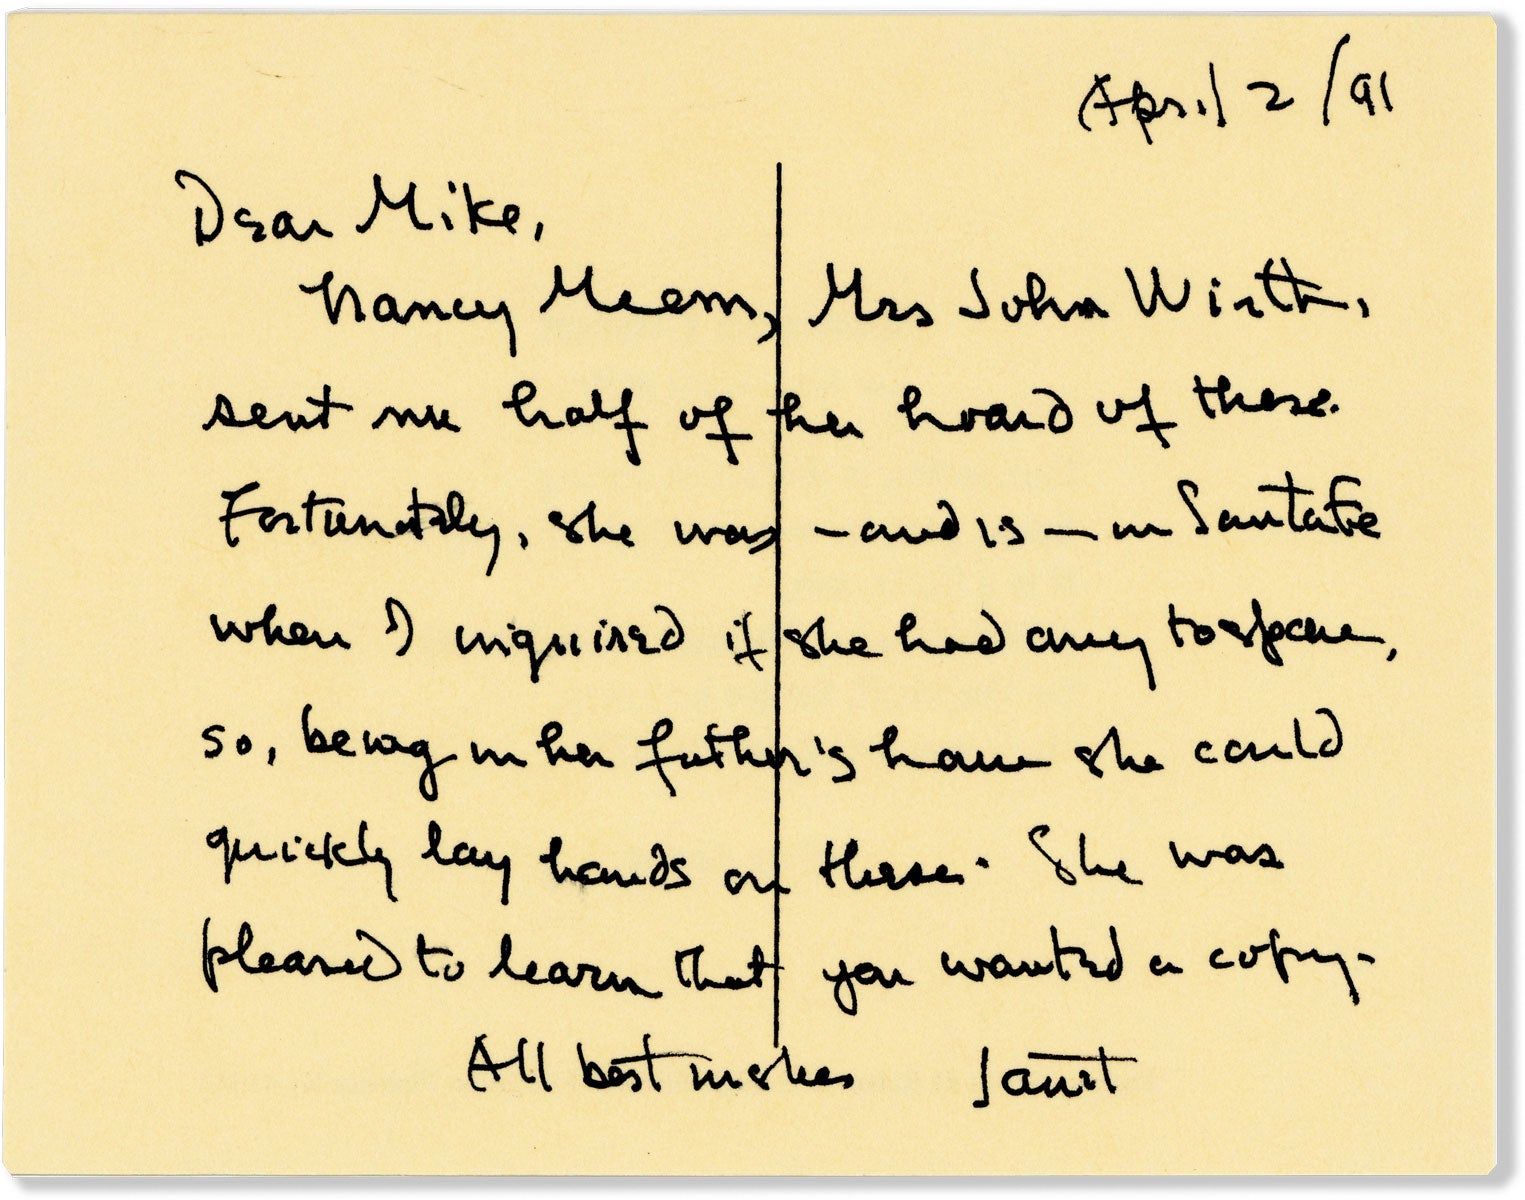 April 2/91
Dear Mike,
Nancy Meem, Mrs John Wirth,
sent me half of her hoard of these.
Fortunately, she was – and is – in Santa Fe
when I inquired if she had any to spare,
so, being in her father's house she could
quickly lay hands on these. She was
pleased to learn that you wanted a copy.
All best wishes Janet